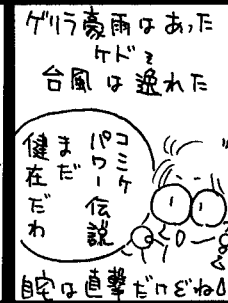 ゲリラ豪雨はあった
ケドﾞｪ
台風は逸れた
コミケ
パワー伝説
まだ
健在だわ
自宅は直撃だけどね